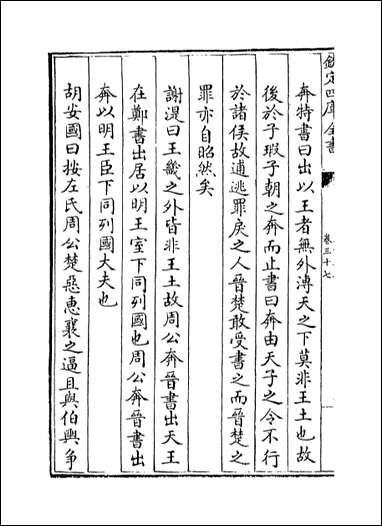 欽定四庫全書
卷三十七
奔特書曰出以王者無外溥天之下莫非王土也故
後於子瑕子朝之奔而止書曰奔由天子之令不行
於諸侯故逋逃罪戾之人晉楚敢受書之而晉楚之
罪亦自昭然矣
謝湜曰王畿之外皆非王土故周公奔晉書出天王
在鄭書出居以明王室下同列國也周公奔晉書出
奔以明王臣下同列國大夫也
胡安國曰按左氏周公楚惡惠襄之逼且與伯輿争